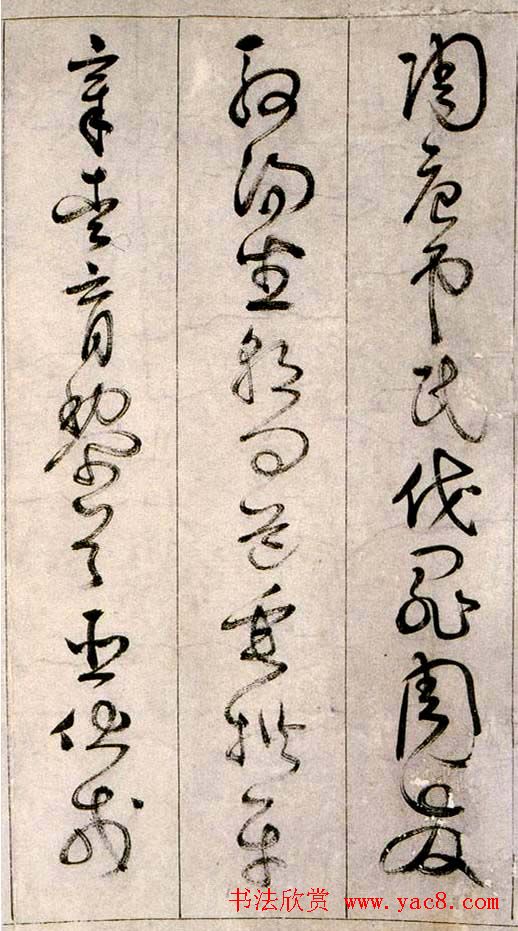 陶唐弔民伐罪周發
殷湯坐朝問道垂拱平
章愛育黎首臣伏戎
书法欣赏 www.yac8.com